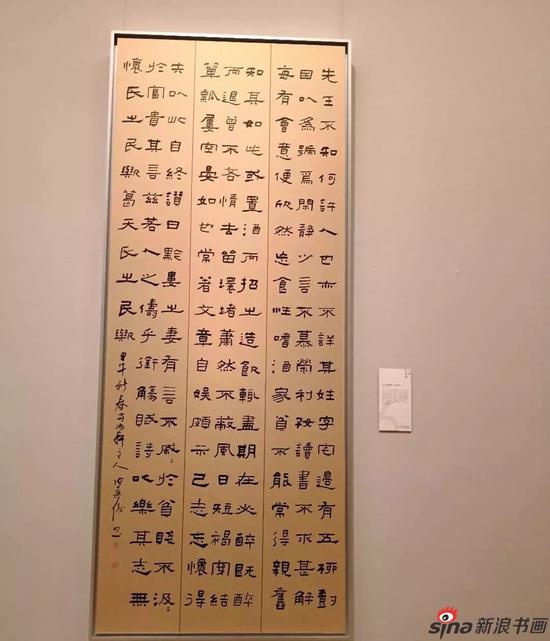 先生不知何許人也亦不詳其姓字宅邊有五柳樹
因以為號焉閑靜少言不慕榮利好讀書不求甚解
每有會意便欣然忘食性嗜酒家貧不能常得親舊
知其如此或置酒而招之造飲輒盡期在必醉既醉
而退曾不吝情去留環堵蕭然不蔽風日短褐穿結
簞瓢屢空晏如也常著文章自娛頗示己志忘懷得
失以此自終讚曰黔婁之妻有言不慼〻於貧賤不汲〻
於富貴其言茲若人之儔乎銜觴賦詩以樂其志無
懷氏之民歟葛天氏之民歟
甲午新春
sina新浪书画